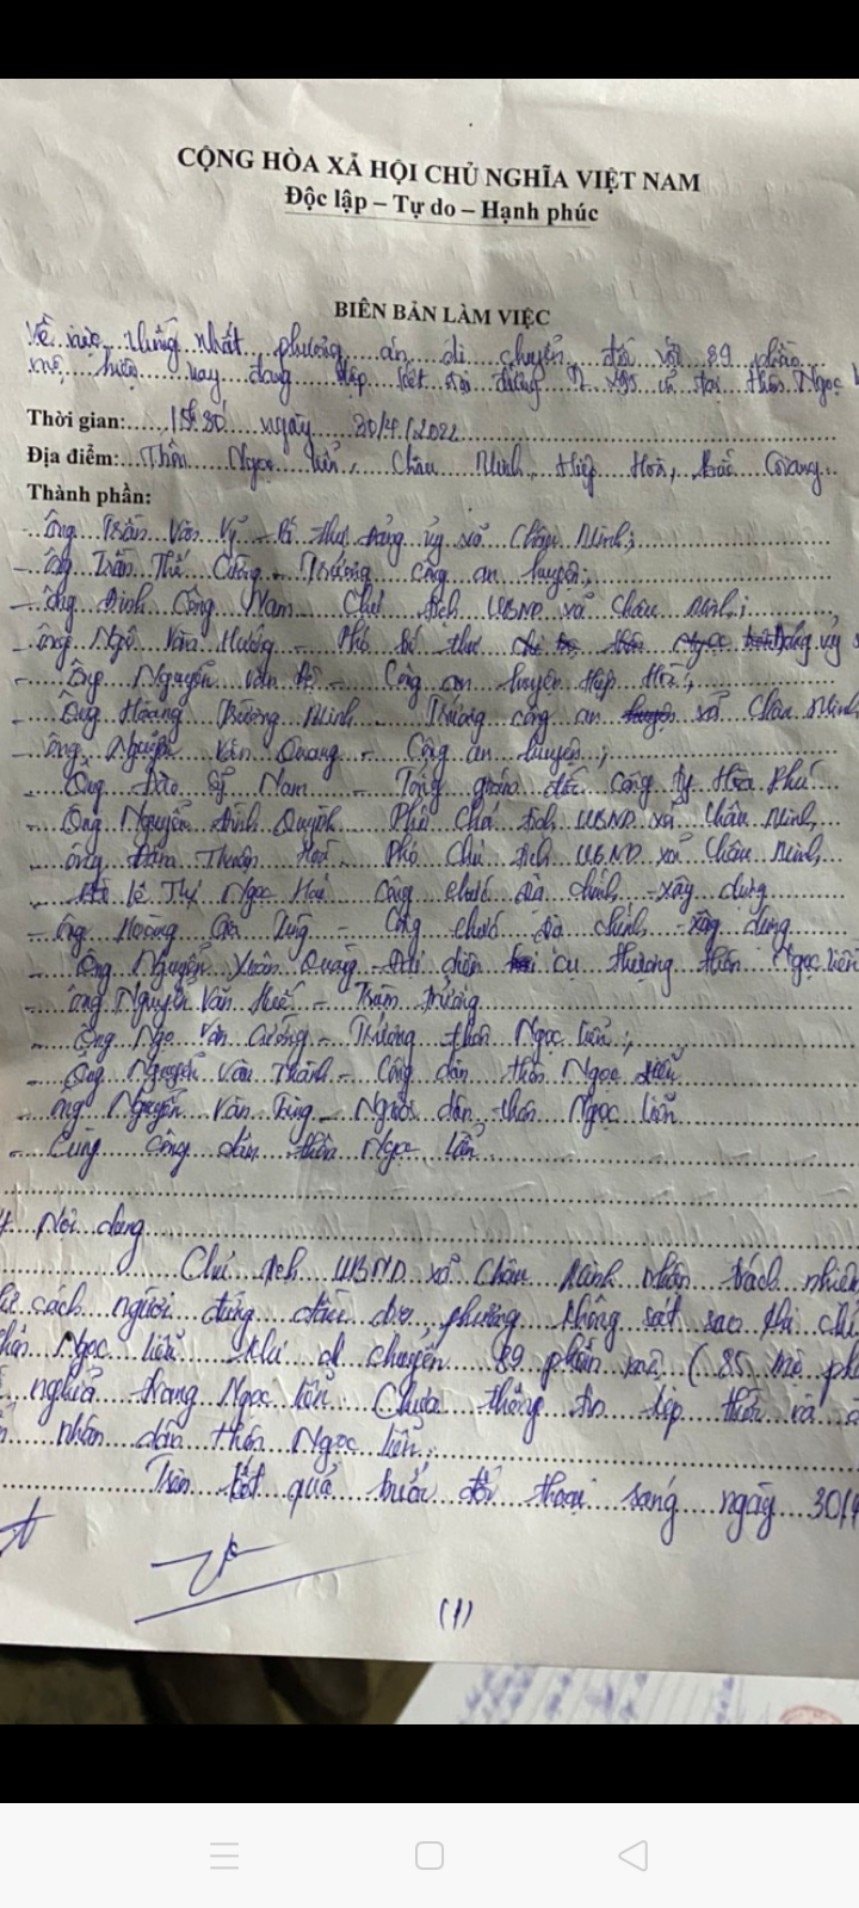 CỘNG HÒA XÃ HỘI CHỦ NGHĨA VIỆT NAM
Độc lập – Tự do – Hạnh phúc
BIÊN BẢN LÀM VIỆC
Về việc thống nhất phương án di chuyển đối với 89 phần
mộ hiện nay đang tại thôn Ngọc
Thời gian: 15h30 ngày 30/4/2022
Địa điểm: Thôn Ngọc Liễn, Châu Minh, Hiệp Hoà, Bắc Giang
Thành phần:
- Ông Trần Văn Vỹ - Bí thư Đảng ủy xã Châu Minh;
- Ông Trần Thế Cường - Trưởng công an huyện;
- Ông Đinh Công Nam Chủ tịch UBND xã Châu Minh;
- Ông Ngô Văn Hướng - Phó bí thư Đảng ủy
- Ông Nguyễn Văn - Công an huyện Hiệp Hoà;
- Ông Hoàng Trường Minh - Trưởng công an xã Châu Minh
- Ông Nguyễn Văn Quang - Công an huyện;
- Ông Đào Sỹ Nam - Tổng giám đốc Công ty Hòa Phú
- Ông Nguyễn Đình Quỳnh Phó Chủ tịch UBND xã Châu Minh,
- Ông Đàm Thuận Phó Chủ tịch UBND xã Châu Minh,
- Lê Thị Ngọc Công chức Địa chính - xây dựng
- Ông Hoàng Công chức Địa chính - xây dựng
- Ông Nguyễn Xuân Quang - Đại diện cụ thượng thôn Ngọc Liễn
- Ông Nguyễn Văn Huế - Trạm trưởng
- Ông Ngọ Văn Cường - Trưởng thôn Ngọc Liễn;
- Ông Nguyễn Văn Thành - Công dân thôn Ngọc Liễn
- Ông Nguyễn Văn - Người dân thôn Ngọc Liễn
- Cùng công dân thôn Ngọc Liễn
Nội dung
Chủ tịch UBND xã Châu Minh nhận trách nhiệm
cách người đứng đầu địa phương không sát sao
Ngọc Liễn khi di chuyển 89 phần mộ (85 mộ
nghĩa trang Ngọc Liễn chưa thông tin kịp thời và
nhân dân thôn Ngọc Liễn;
Trên kết quả buổi đối thoại sáng ngày 30/4
(1)